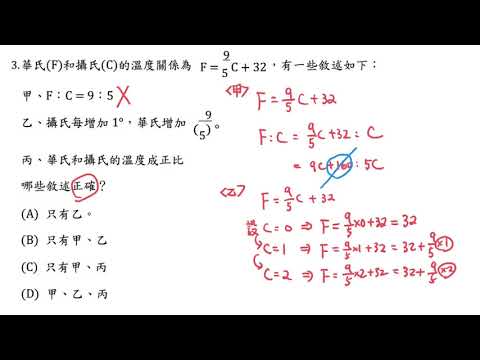 3.華氏(F)和攝氏(C)的溫度關係為 F=9/5C+32，有一些敘述如下：
甲、F：C=9：5 X
乙、攝氏每增加 1°，華氏增加 (9/5)°。
丙、華氏和攝氏的溫度成正比
哪些敘述正確？
(A) 只有乙。
(B) 只有甲、乙
(C) 只有甲、丙
(D) 甲、乙、丙
<甲> F=9/5C+32
F:C=9/5C+32:C
=9C+160:5C
<乙> F=9/5C+32
設 C=0 ⇒ F=9/5×0+32=32
C=1 ⇒ F=9/5×1+32=32+9/5×1
C=2 ⇒ F=9/5×2+32=32+9/5×2